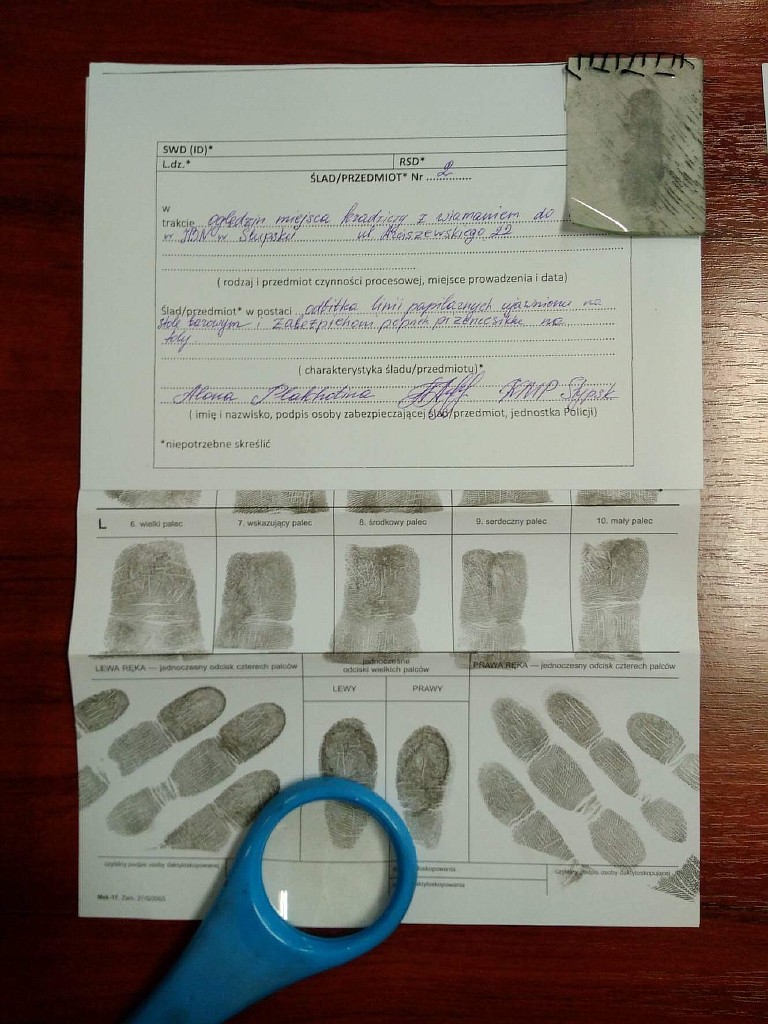 SWD (ID)*
L.dz.*
RSD*
ŚLAD/PRZEDMIOT* Nr 2
w
trakcie oględzin miejsca kradzieży z włamaniem do
w Słupsku ul 22
( rodzaj i przedmiot czynności procesowej, miejsce prowadzenia i data)
Ślad/przedmiot* w postaci odbitka linii papilarnych na
stole i na
folię
( charakterystyka śladu/przedmiotu)*
Alona KMP Słupsk
( imię i nazwisko, podpis osoby zabezpieczającej ślad/przedmiot, jednostka Policji)
*niepotrzebne skreślić
L
6. wielki palec
7. wskazujący palec
8. środkowy palec
9. serdeczny palec
10. mały palec
LEWA RĘKA — jednoczesny odcisk czterech palców
jednoczesne
odciski wielkich palców
PRAWA RĘKA — jednoczesny odcisk czterech palców
LEWY
PRAWY
czytelny podpis osoby daktyloskopowanej
czytelny podpis osoby daktyloskopującej